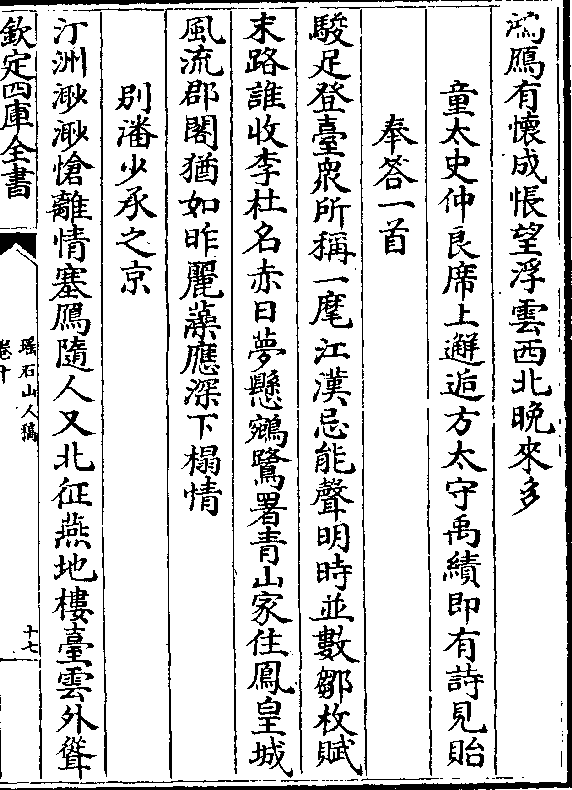 鴻鴈有懷成悵望浮雲西北晚來多
童太史仲良席上邂逅方太守禹績即有詩見貽
奉答一首
駿足登臺衆所稱一麾江漢忌能聲明時並數鄒枚賦
末路誰收李杜名赤日夢懸鵷鷺署青山家住鳳皇城
風流郡閣猶如昨麗藻應深下榻情
别潘少承之京
汀洲渺渺愴離情塞鴈隨人又北征燕地樓臺雲外聳
欽定四庫全書
瑶石山人稿
卷十
十七